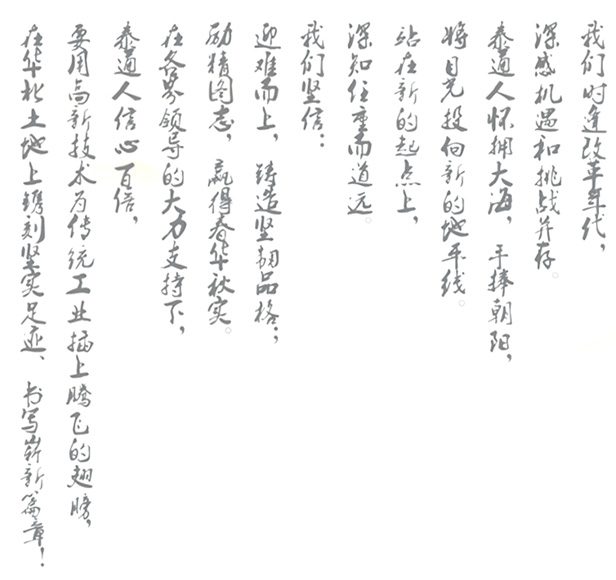 我们时逢改革年代，
深感机遇和挑战并存。
泰通人怀拥大海，手捧朝阳，
将目光投向新的地平线。
站在新的起点上，
深知任重而道远。
我们坚信：
迎难而上，铸造坚韧品格；
励精图志，赢得春华秋实。
在各界领导的大力支持下，
泰通人信心百倍，
要用高新技术为传统工业插上腾飞的翅膀，
在华北土地上镌刻坚实足迹、书写崭新篇章！